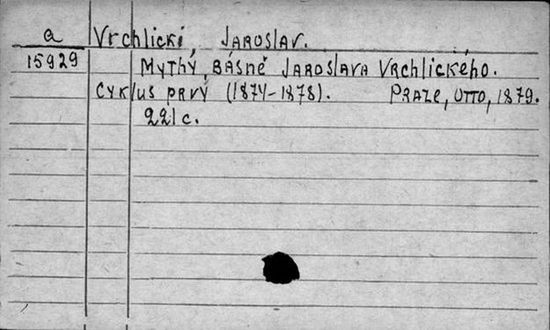 a Vrchlický, Jaroslav.
15929 Mythy, básně Jaroslava Vrchlického.
Cyklus prvý (1874-1878). Praze, Otto, 1879.
221 c.